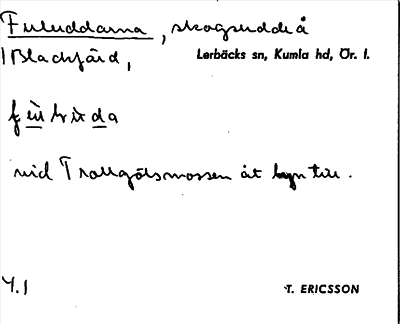 Fuluddarna, skogsudde å
Blackfärd,
Lerbäcks sn, Kumla hd, Ör. l.
vid Trollgölsmossen åt byn till.
4.1
T. ERICSSON